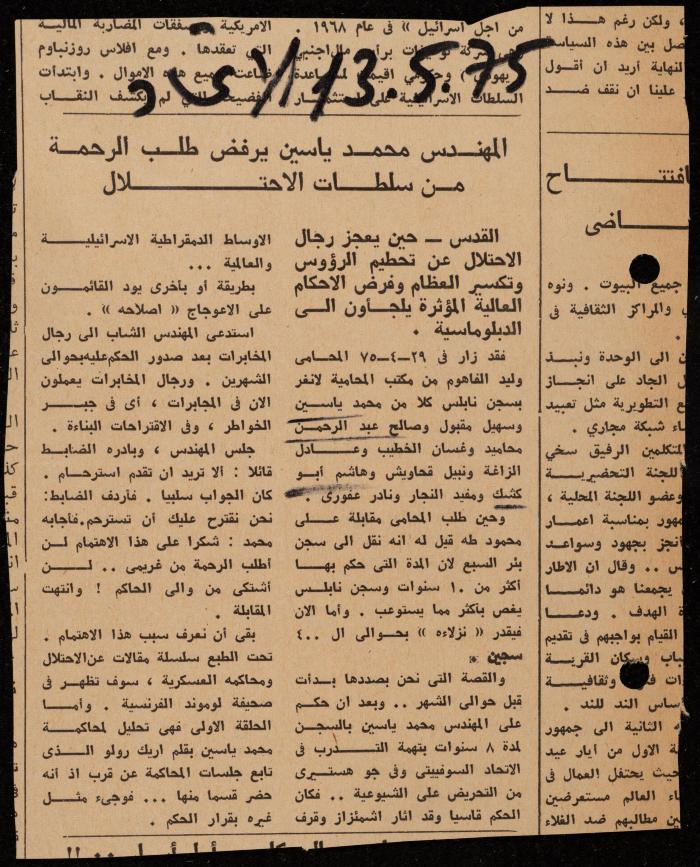 من اجل اسرائيل » فى عام ١٩٦٨ .
السلطات الاسرائيلية على
الامريكية وصفقات المضاربة المالية
التى تعقدها . ومع افلاس روزنباوم
هذه الاموال . وابتدأت
تكشف النقاب
13.5.75
المهندس محمد ياسين يرفض طلب الرحمة
من سلطات الاحتلال
القدس — حين يعجز رجال
الاحتلال عن تحطيم الرؤوس
وتكسير العظام وفرض الاحكام
العالية المؤثرة يلجأون الى
الدبلوماسية .
فقد زار فى ٢٩—٤—٧٥ المحامى
وليد الفاهوم من مكتب المحامية لانغر
بسجن نابلس كلا من محمد ياسين
وسهيل مقبول وصالح عبد الرحمن
محاميد وغسان الخطيب وعادل
الزاغة ونبيل قحاويش وهاشم أبو
كشك ومفيد النجار ونادر عفورى .
وحين طلب المحامى مقابلة على
محمود طه قيل له انه نقل الى سجن
بئر السبع لان المدة التى حكم بها
أكثر من ١٠ سنوات وسجن نابلس
يغص بأكثر مما يستوعب . وأما الان
فيقدر « نزلاءه » بحوالى ال ٤٠٠
سجين *
والقصة التى نحن بصددها بدأت
قبل حوالى الشهر .. وبعد ان حكم
على المهندس محمد ياسين بالسجن
لمدة ٨ سنوات بتهمة التدرب فى
الاتحاد السوفييتى وفى جو هستيرى
من التحريض على الشيوعية .. فكان
الحكم قاسيا وقد اثار اشمئزاز وقرف
الاوساط الدمقراطية الاسرائيلية
والعالمية ...
بطريقة أو بأخرى يود القائمون
على الاعوجاج « اصلاحه » .
استدعى المهندس الشاب الى رجال
المخابرات بعد صدور الحكم عليه بحوالى
الشهرين . ورجال المخابرات يعملون
الان فى المجابرات ، أى فى جبر
الخواطر ، وفى الاقتراحات البناءة .
جلس المهندس ، وبادره الضابط
قائلا : ألا تريد ان تقدم استرحام .
كان الجواب سلبيا . فأردف الضابط:
نحن نقترح عليك أن تسترحم.فأجابه
محمد : شكرا على هذا الاهتمام لن
أطلب الرحمة من غريمى .. لن
أشتكى من والى الحاكم ! وانتهت
المقابلة .
بقى أن نعرف سبب هذا الاهتمام .
تحت الطبع سلسلة مقالات عن الاحتلال
ومحاكمه العسكرية ، سوف تظهر فى
صحيفة لوموند الفرنسية . وأما
الحلقة الاولى فهى تحليل لمحاكمة
محمد ياسين بقلم اريك رولو الذى
تابع جلسات المحاكمة عن قرب اذ انه
حضر قسما منها ... فوجىء مثل
غيره بقرار الحكم .
، ولكن رغم هذا لا
صل بين هذه السياسة
لنهاية أريد ان أقول
علينا ان نقف ضد
افتتاح
اضى
جميع البيوت . ونوه
والمراكز الثقافية فى
ن الى الوحدة ونبذ
ل الجاد على انجاز
ع التطويرية مثل تعبيد
اء شبكة مجاري .
المتكلمين الرفيق سخي
للجنة التحضيرية
وعضو اللجنة المحلية ،
مهور بمناسبة اعمار
أنجز بجهود وسواعد
س .. وقال ان الاطار
يجمعنا هو دائما
ة الهدف . ودعا
القيام بواجبهم فى تقديم
باب وسكان القرية
وثقافية
ساس الند للند .
ه الثانية الى جمهور
بة الاول من أيار عيد
حيث يحتفل العمال فى
اء العالم مستعرضين
ين مطالبهم ضد الغلاء